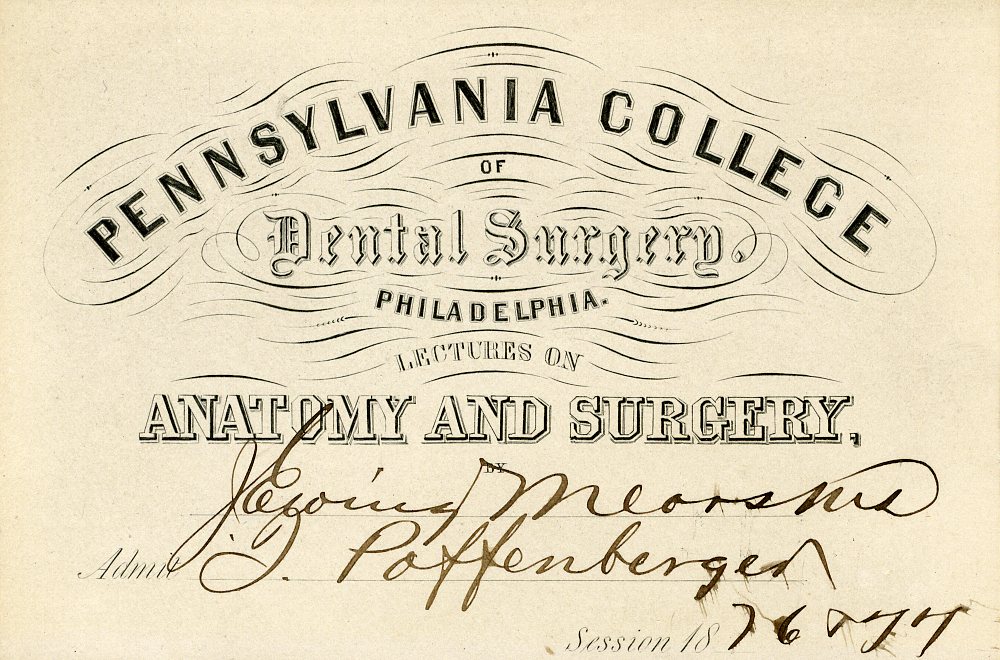 PENNSYLVANIA COLLEGE
OF
Dental Surgery.
PHILADELPHIA.
LECTURES ON
ANATOMY AND SURGERY,
BY
J Ewing Mears MD
Admit J. Poffenberger
Session 18 76 & 77